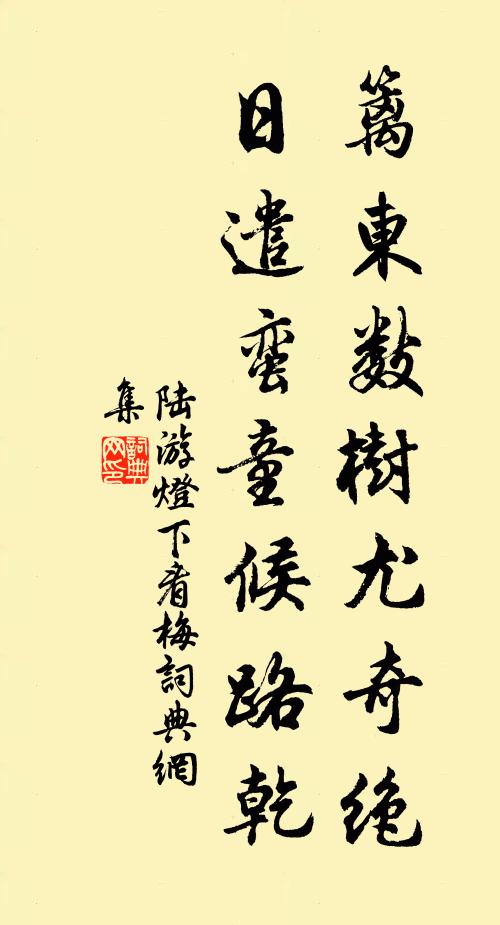 籬東数樹尤奇绝
日遣蛮童候路乾
陆游燈下看梅詞典網
集
詞典网印